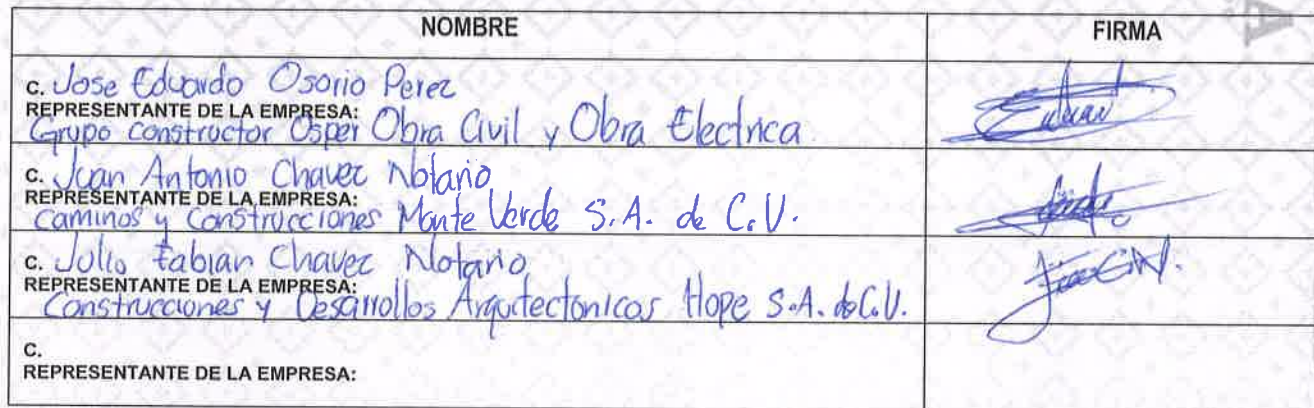 NOMBRE FIRMA
C. Jose Eduardo Osorio Perez
REPRESENTANTE DE LA EMPRESA:
Grupo constructor Osper Obra Civil y Obra Electrica
C. Juan Antonio Chavez Notario
REPRESENTANTE DE LA EMPRESA:
Caminos y Construcciones Monte Verde S.A. de C.V.
C. Julio Fabian Chavez Notario
REPRESENTANTE DE LA EMPRESA:
Construcciones y Desarrollos Arquitectonicos Hope S.A. de C.V.
C.
REPRESENTANTE DE LA EMPRESA: